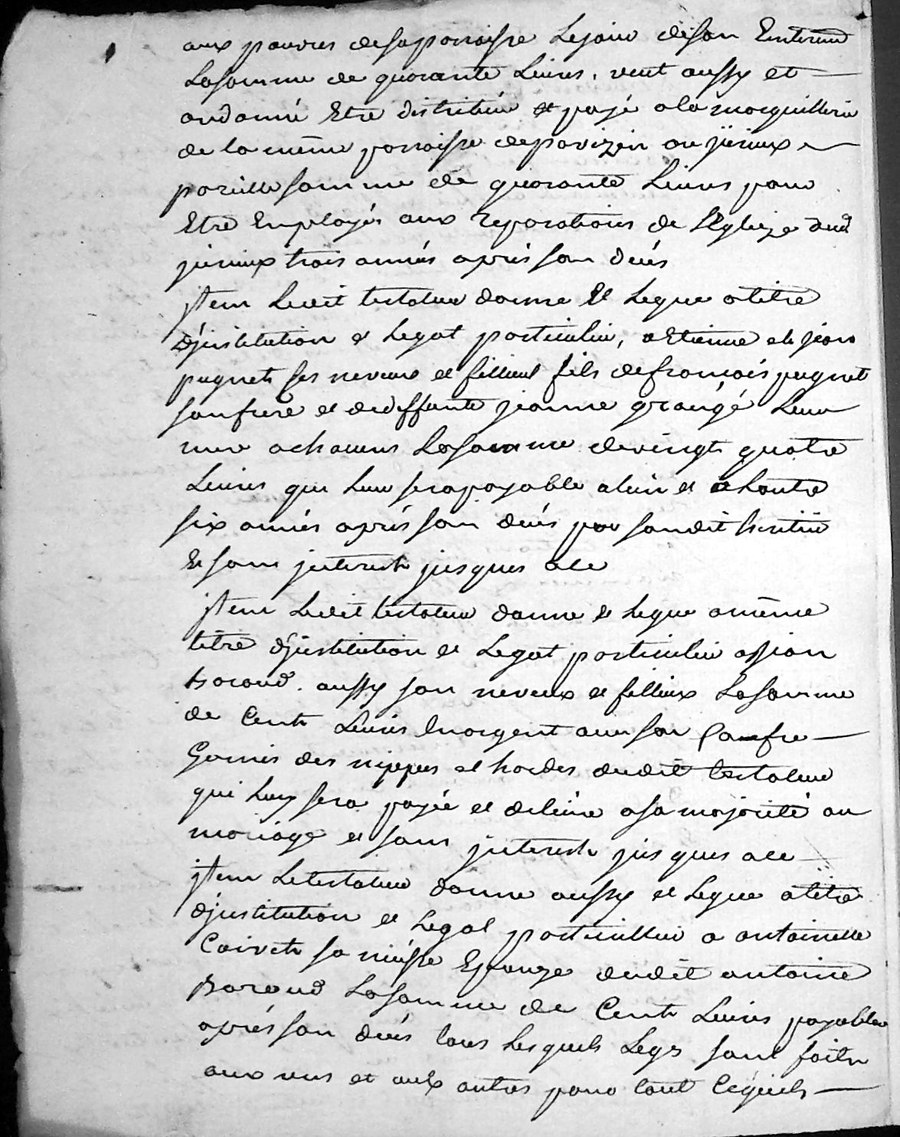 aux pauvres de sa parroisse Le jour de son Enterrem
La somme de quarante Livres, veut aussy et
ordonné Etre distribuée et payé a la marguillerie
de la même parroisse de parizin ou jurieux
pareille somme de quarante Livres pour
Etre Employés aux reparations de l'Eglize dud
jurieux trois années après son decés
jtem Ledit testateur donne Et Legue a titre
d'justitution et Legat particulier, a Etienne et jean
pugnet ses neveux et filleul fils de francois pugnet
son frere et de deffunte jeanne grangé Leur
mere a chacuns La somme de vingt quatre
Livres qui Leur sera payable a lun et a Lautre
six années aprés son decés par son dit heritier
Et sans jnterest jusques a ce
jtem Ledit testateur donne et Legue a même
titre d'justitution et Legat particulier a jean
baraud aussy son neveux et filleux La somme
de Cent Livres En argent avec son Coffre
Garnis des nippes et hardes dudit testateur
qui luy sera payée et delivré a sa majorité ou
mariage et sans jnterest jusques a ce
jtem Le testateur donne aussy et Legue a titre
d'justitution et Legat particullier a antoinette
sa niésse Epouze dudit antoine
Baraud La somme de Cent Livres payables
aprés son decés tous Lesquels Legs sont faits
aux uns et aux autres pour tout Ce quils